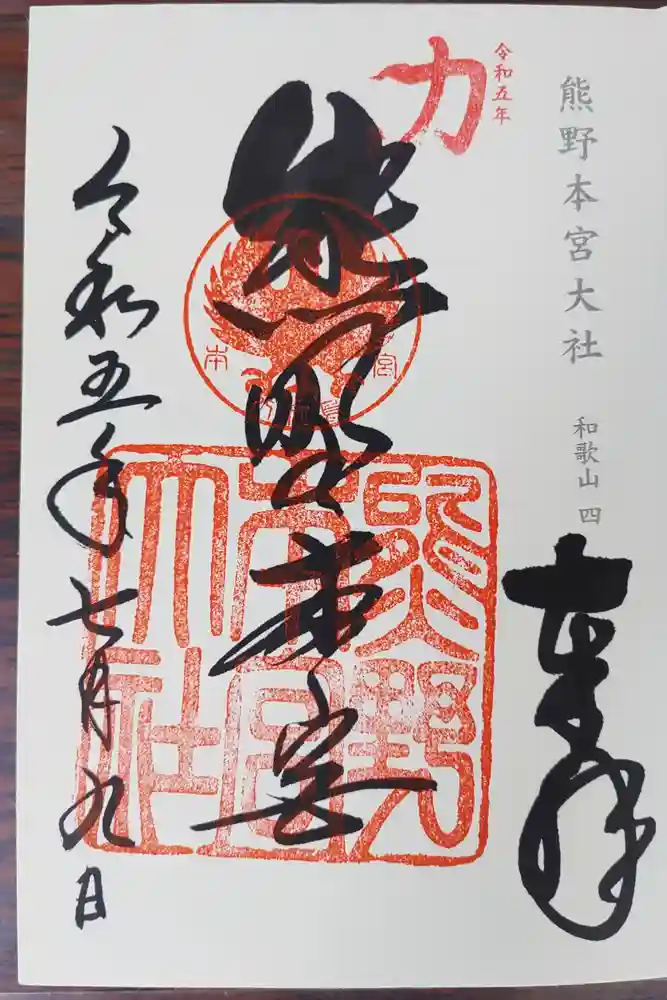 熊野本宮大社
和歌山 四
奉拝
令和五年
力
熊野本宮
本
宮
熊野
本宮
大社
令和五年七月九日